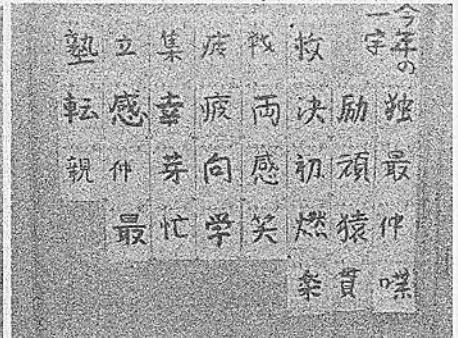 今年の
一字
独最仲喋
励頑猿貫
救決初燃楽
戦両感笑
疲向学
集幸芽忙
立感仲最
塾転親